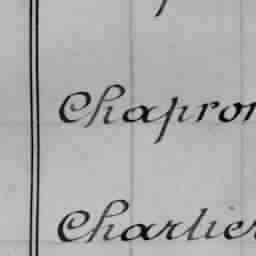 Chapron
Charlier